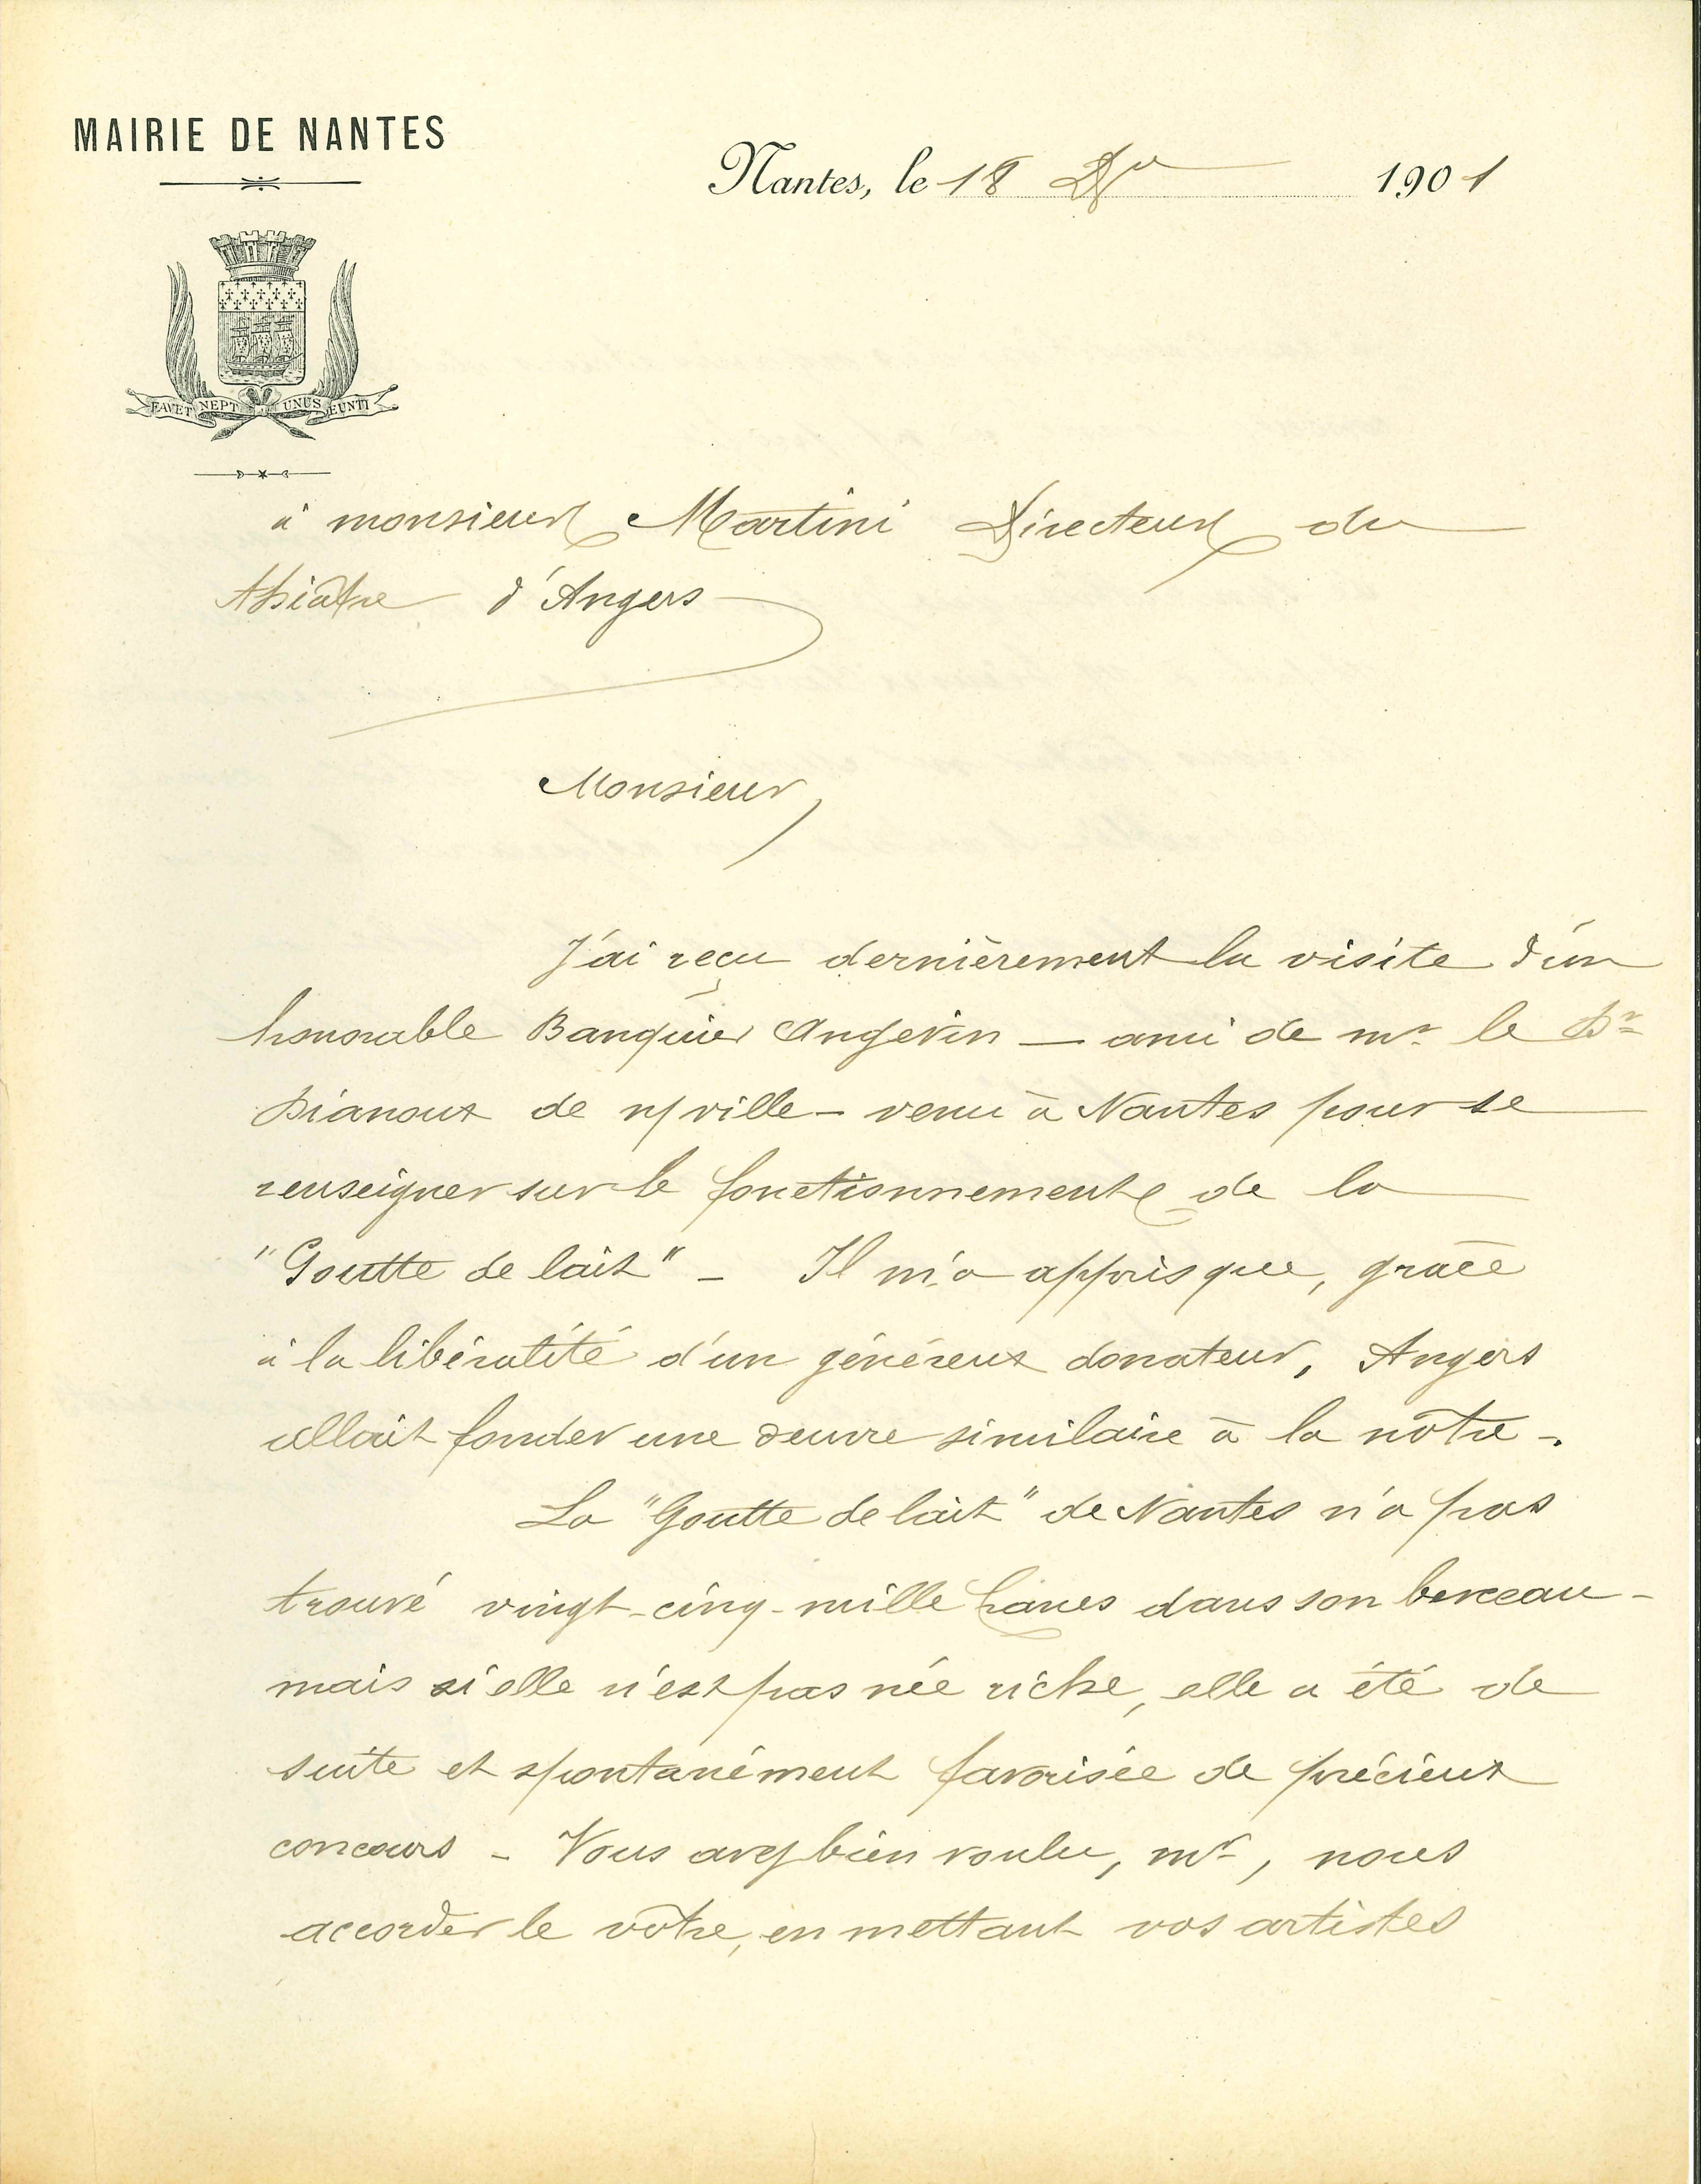 MAIRIE DE NANTES
Nantes, le 18 Xbre 1901
FAVET NEPTUNUS EUNTI
à monsieur Martini Directeur du
théâtre d'Angers
Monsieur,
J'ai reçu dernièrement la visite d'un
honorable Banquier Angevin — ami de mr le Dr
de n/ville — venu à Nantes pour se
renseigner sur le fonctionnement de la
"Goutte de lait" — Il m'a appris que, grâce
à la libéralité d'un généreux donateur, Angers
allait fonder une œuvre similaire à la nôtre —.
La "Goutte de lait" de Nantes n'a pas
trouvé vingt-cinq-mille francs dans son berceau —
mais si elle n'est pas née riche, elle a été de
suite et spontanément favorisée de précieux
concours — Vous avez bien voulu, mr, nous
accorder le vôtre, en mettant vos artistes